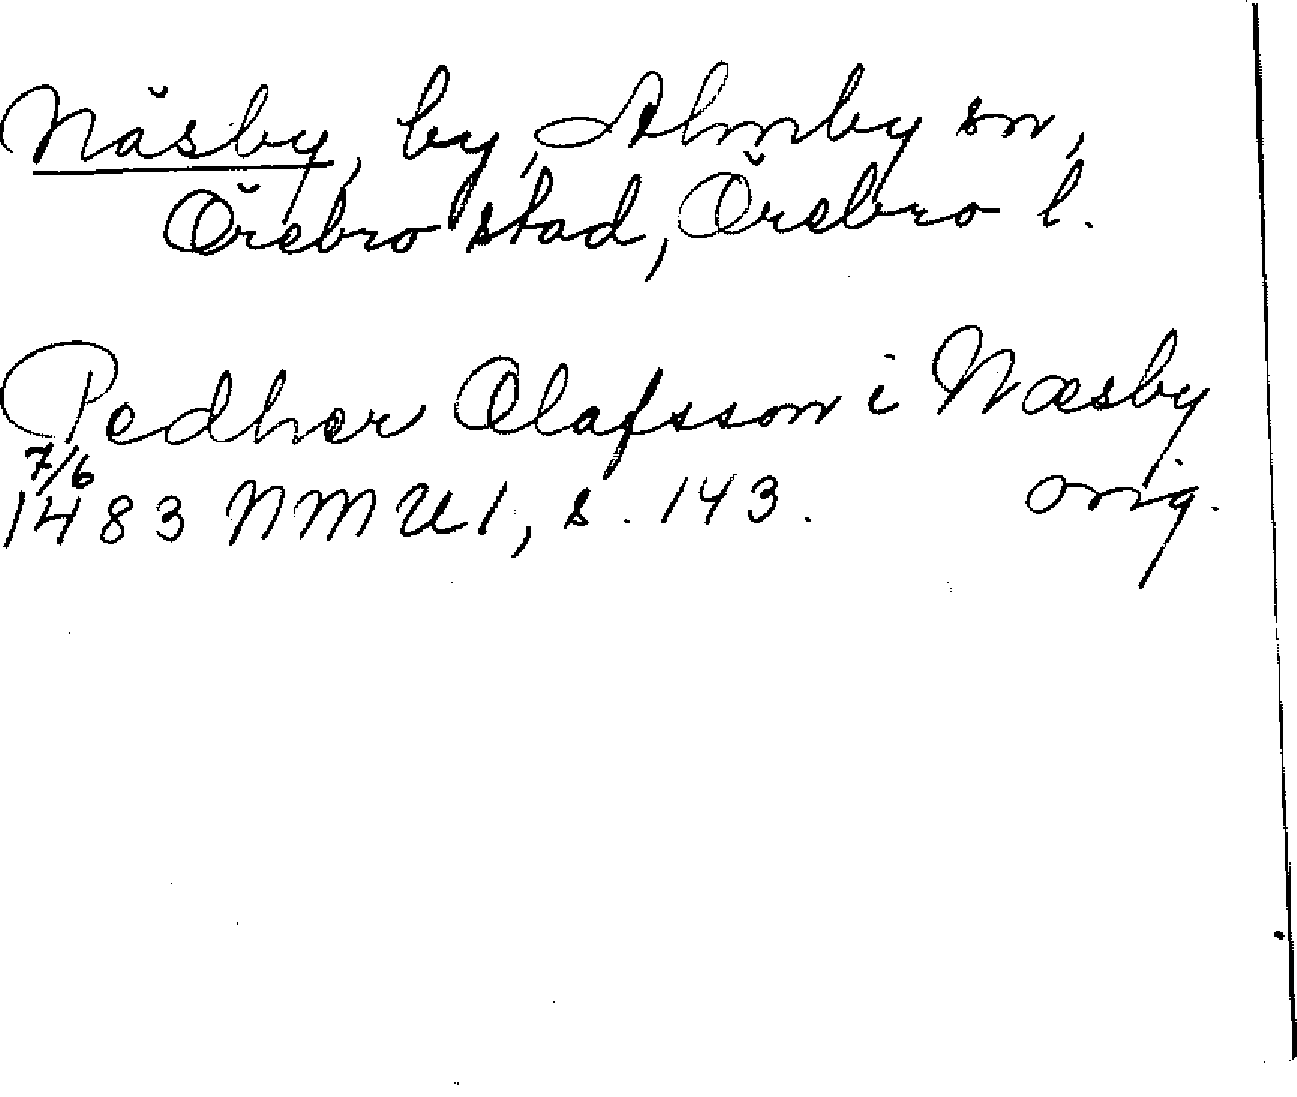 Näsby, by, Almby sn,
Örebro stad, Örebro l.
Pedher Olafsson i Næsby
7/6
1483 NMU1, s. 143. orig.